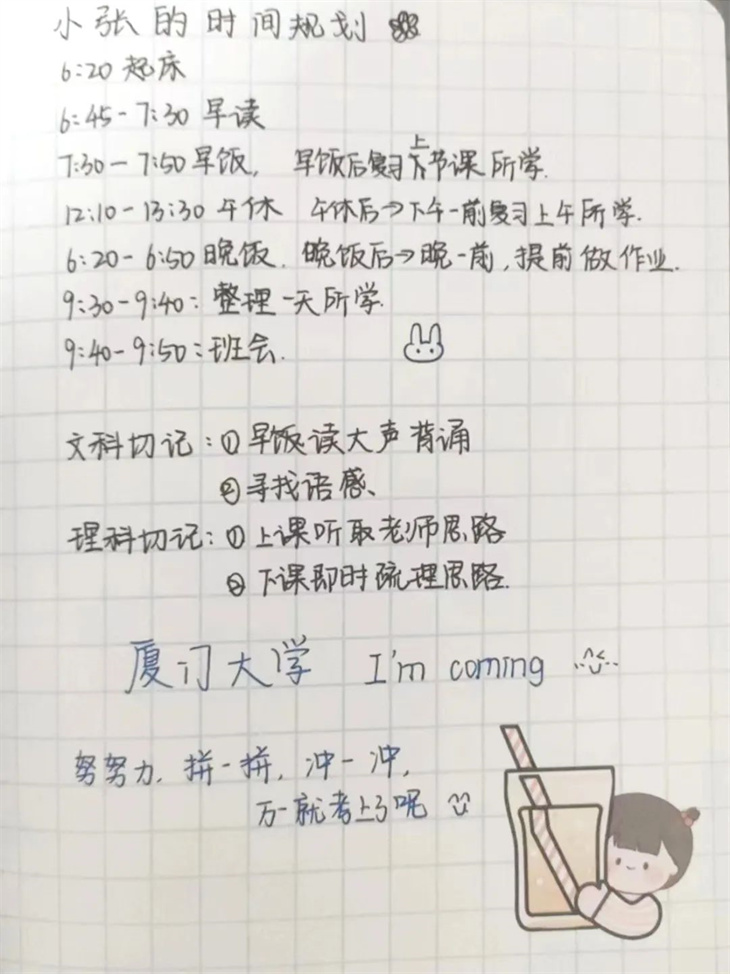 小张的时间规划
6:20起床
6:45-7:30 早读
7:30-7:50早饭, 早饭后复习上节课所学.
12:10-13:30 午休 午休后→下午一前复习上午所学.
6:20-6:50晚饭. 晚饭后→晚一前,提前做作业.
9:30-9:40: 整理一天所学.
9:40-9:50:班会.
文科切记:①早饭读大声背诵
②寻找语感、
理科切记:①上课听取老师思路
②下课即时疏理思路.
厦门大学 I'm coming
努努力,拼一拼,冲一冲,
万一就考上了呢